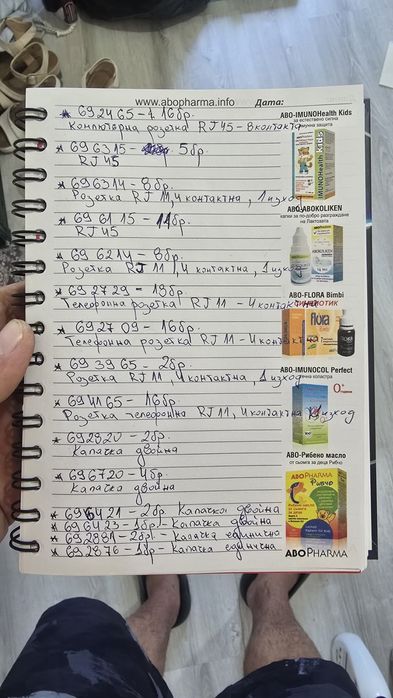 www.abopharma.info Дата:
* 692465-1 16бр.
Компютърна розетка RJ45-8контакта
* 696315- 5бр.
RJ45
* 696314-8бр.
Розетка RJ11,4 контактна, 1изход
* 696115-11бр.
RJ45
* 696214-8бр.
Розетка RJ11,4 контактна, 1изход
* 692729-18бр.
Телефонна розетка RJ11-4 контактна
* 692709-16бр.
Телефонна розетка RJ11-4 контактна
* 693965-2бр.
Розетка RJ11,4 контактна, 1изход
* 694165-16бр
Розетка телефонна RJ11,4 контактна 1изход
* 692820-2бр.
Капачка двойна
* 696720-4бр.
Капачка двойна
* 696421-2бр. Капачка двойна
* 696423-1бр.-Капачка двойна
* 692881-2бр.-Капачка единична
* 692876-1бр-Капачка единична
ABO-IMUNOHealth Kids
за естествено силна
имунна защита
IMUNOHealth Kids
ABO-ABOKOLIKEN
капки за по-добро разграждане
на Лактозата
ABO-FLORA Bimbi
flora
ABO-IMUNOCOL Perfect
течна коластра
ABO-Рибено масло
от сьомга за деца Рибчо
ABOPHARMA
Рибчо
ABOPHARMA